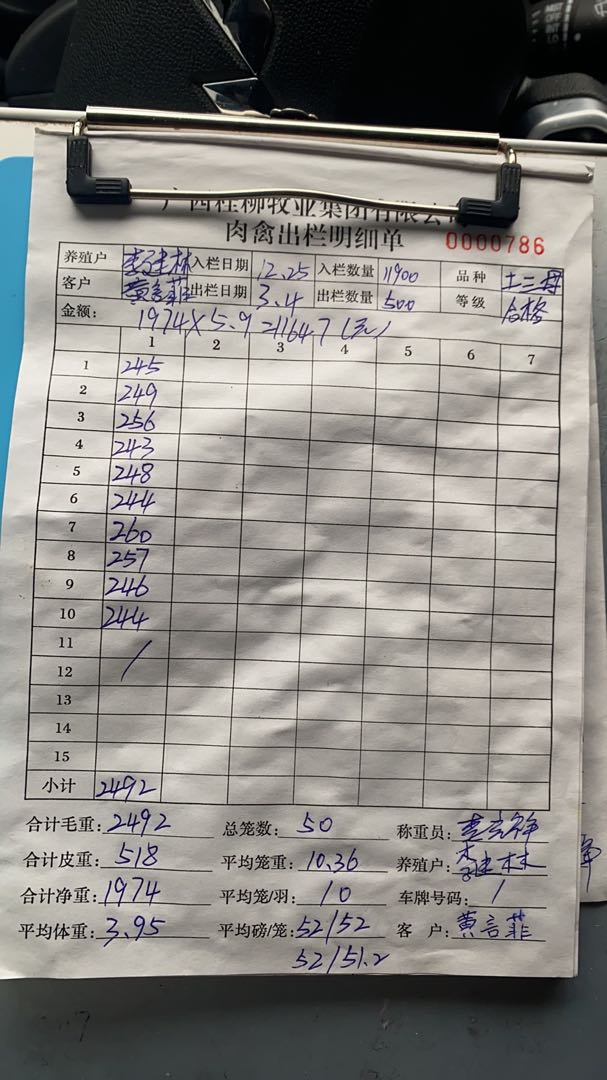 广西桂柳牧业集团有限公司
肉禽出栏明细单 0000786
养殖户 李建林 入栏日期 12.25 入栏数量 11900 品种 土三
客户 黄言菲 出栏日期 3.4 出栏数量 500 等级 合格
金额: 1974×5.9=11647(元)
1 2 3 4 5 6 7
1 245
2 249
3 256
4 243
5 248
6 244
7 260
8 257
9 246
10 244
11 /
12
13
14
15
小计 2492
合计毛重: 2492 总笼数: 50 称重员:
合计皮重: 518 平均笼重: 10.36 养殖户: 李建林
合计净重: 1974 平均笼/羽: 10 车牌号码: /
平均体重: 3.95 平均磅/笼: 52/52 客 户: 黄言菲
52/51.2
MIST
OFF
INT
LO